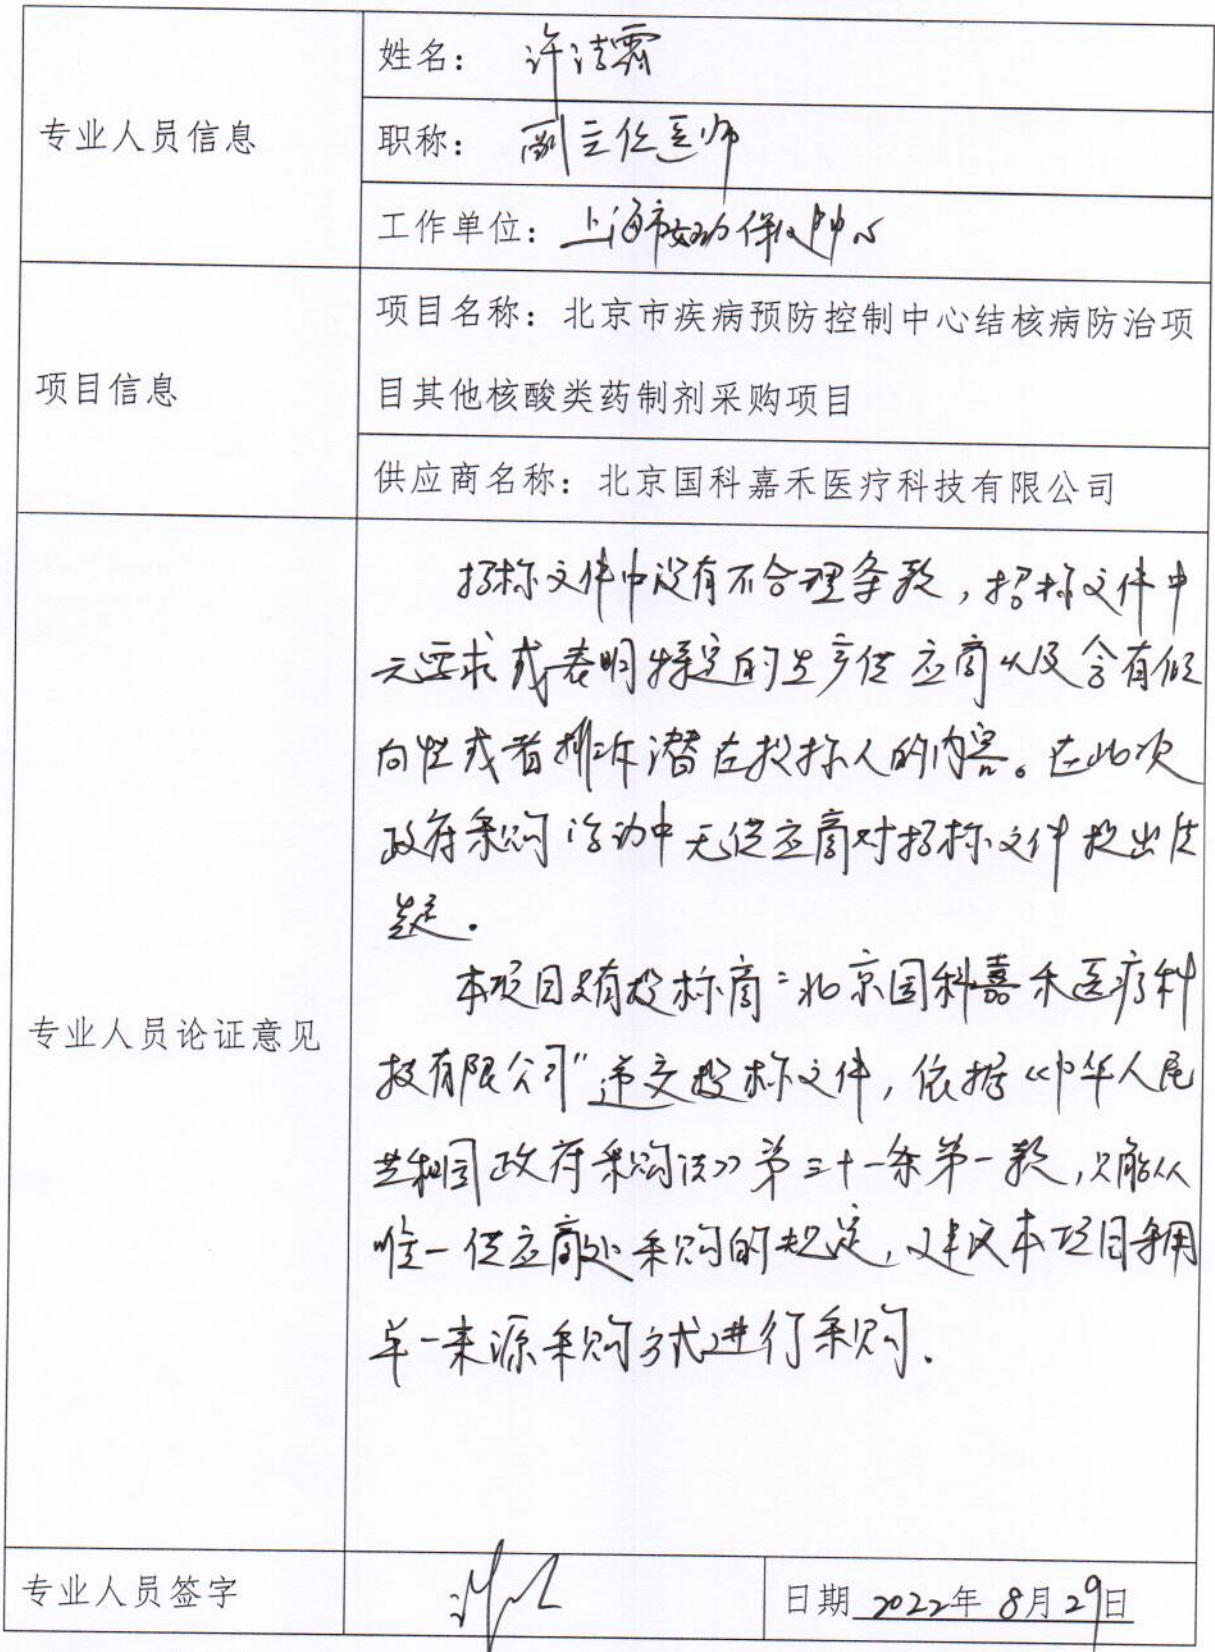 专业人员信息
姓名： 许洁霜
职称： 副主任医师
工作单位：上海市妇幼保健中心
项目信息
项目名称：北京市疾病预防控制中心结核病防治项
目其他核酸类药制剂采购项目
供应商名称：北京国科嘉禾医疗科技有限公司
专业人员论证意见
招标文件中没有不合理条款，招标文件中
无要求或表明特定的生产供应商以及含有倾
向性或者排斥潜在投标人的内容。在此次
政府采购活动中无供应商对招标文件提出质
疑。
本项目只有投标商“北京国科嘉禾医疗科
技有限公司”递交投标文件，依据《中华人民
共和国政府采购法》第三十一条第一款，只能从
唯一供应商处采购的规定，建议本项目采用
单一来源采购方式进行采购。
专业人员签字
日期 2022年 8月29日